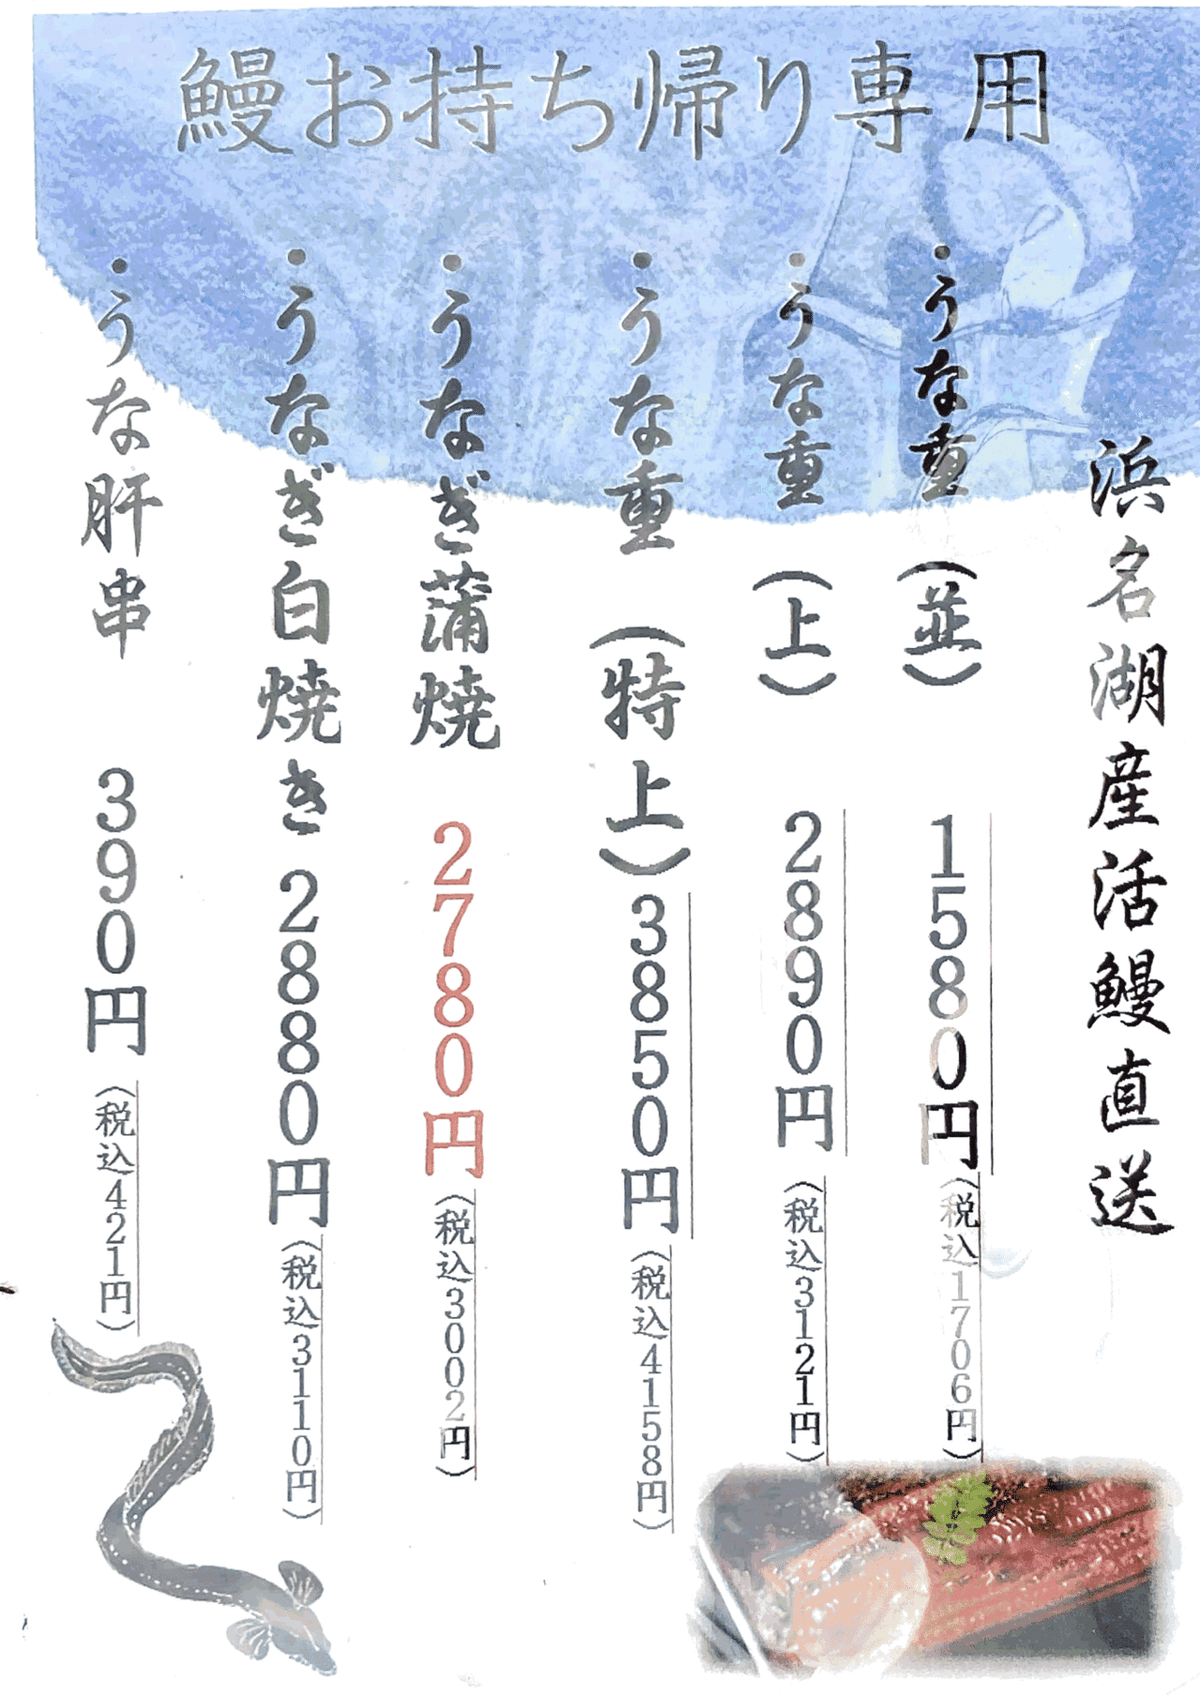 鰻お持ち帰り専用
浜名湖産活鰻直送
・うな重（並） 1580円（税込1706円）
・うな重（上） 2890円（税込3121円）
・うな重（特上）3850円（税込4158円）
・うなぎ蒲焼 2780円（税込3002円）
・うなぎ白焼き 2880円（税込3110円）
・うな肝串 390円（税込421円）